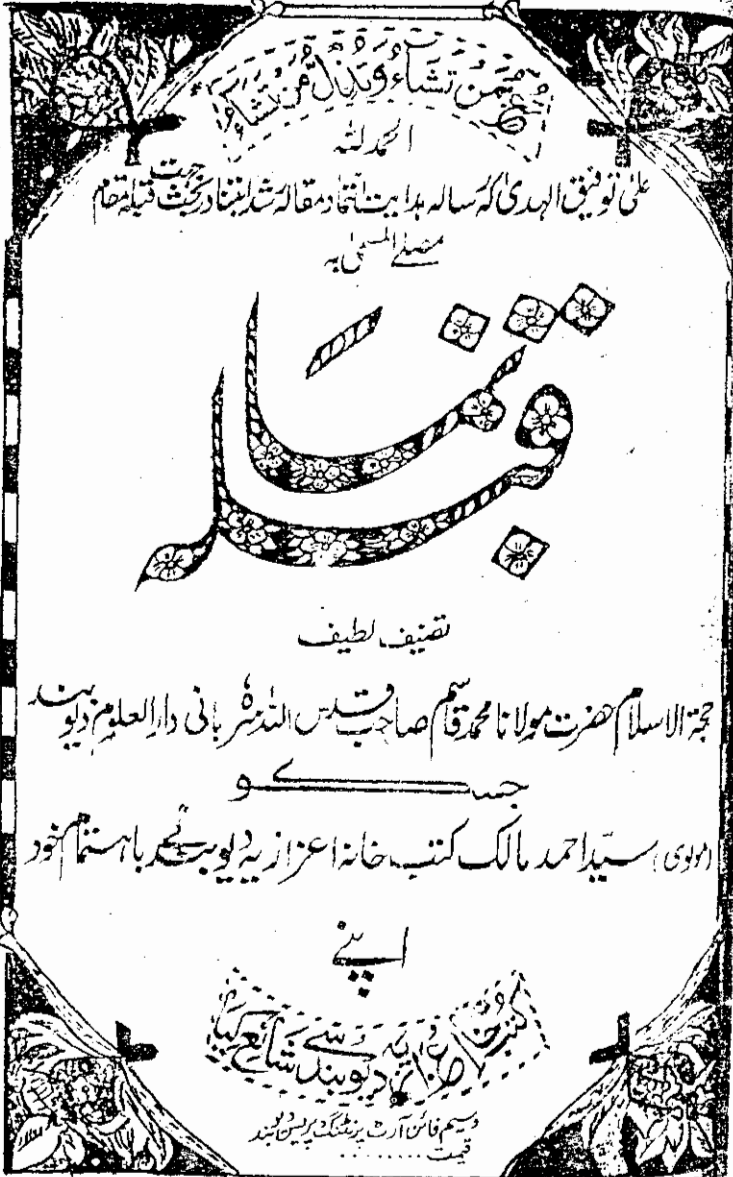 تعز من تشاء وتذل من تشاء
الحمد للہ
علیٰ توفیق الہدیٰ کہ رسالہ ہدایت مقالہ در بحث جہت قبلہ مقام
مصلے المسمیٰ بہ
قبلہ نما
تصنیف لطیف
حجۃ الاسلام حضرت مولانا محمد قاسم صاحب قدس اللہ سرہٗ بانی دار العلوم دیوبند
جسکو
(مولوی) سید احمد مالک کتب خانہ اعزازیہ دیوبند نے باہتمام خود
اپنے
کتب خانہ اعزازیہ دیوبند سے شائع کیا
وسیم فائن آرٹ پرنٹنگ پریس دیوبند
قیمت ........